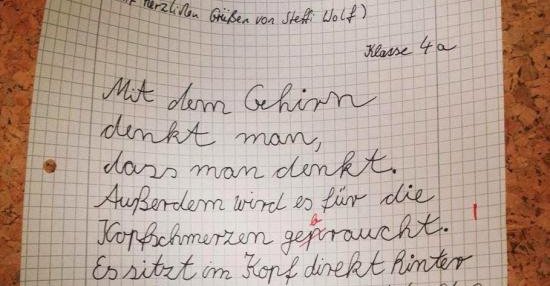 herzlichen Grüßen von Steffi Wolf)
Klasse 4a
Mit dem Gehirn
denkt man,
dass man denkt.
Außerdem wird es für die
b
Kopfschmerzen gepraucht. I
Es sitzt im Kopf direkt hinter